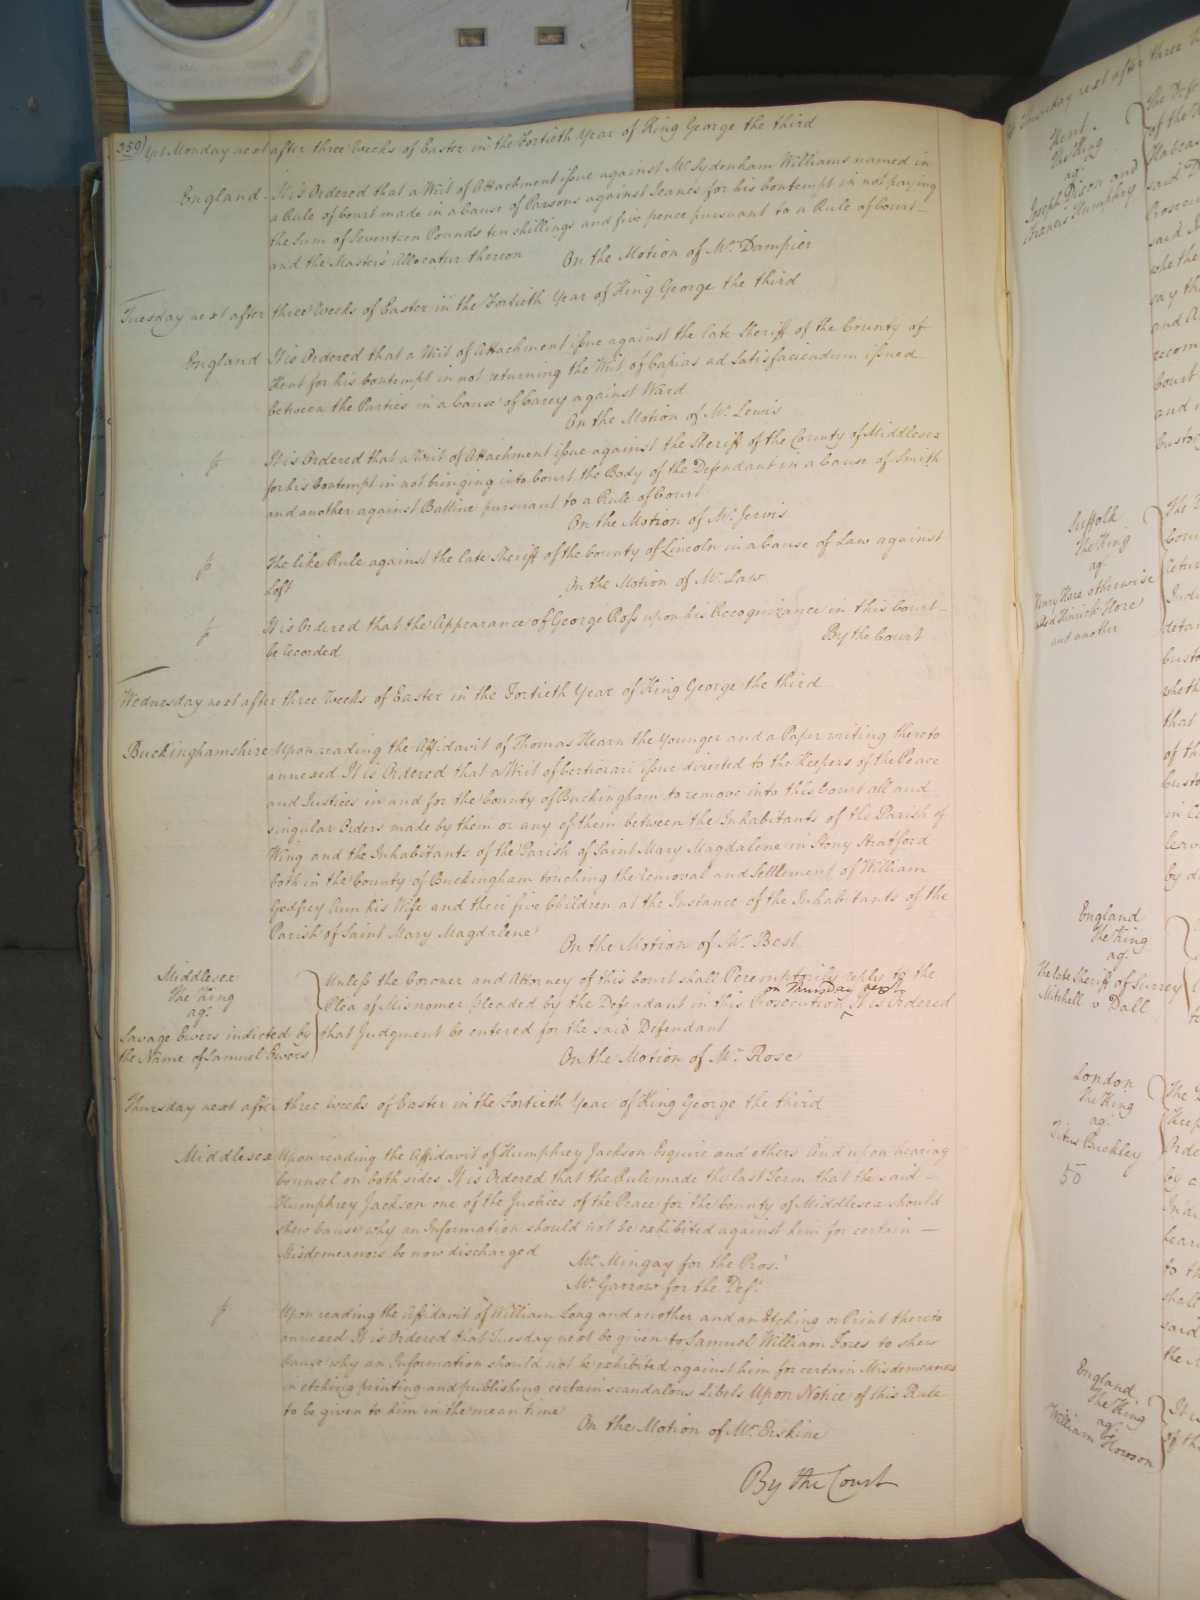 359) Yet Monday next after three Weeks of Easter in the Fortieth Year of King George the third
England It is Ordered that a Writ of Attachment issue against Mr. Sydenham Williams named in
a Rule of Court made in a Cause of Parsons against Jeanes for his Contempt in not paying
the Sum of Seventeen Pounds ten shillings and five pence pursuant to a Rule of Court –
and the Master's Allocatur thereon On the Motion of Mr. Dampier
Tuesday next after three Weeks of Easter in the Fortieth Year of King George the third
England It is Ordered that a Writ of Attachment issue against the late Sheriff of the County of
Kent for his Contempt in not returning the Writ of Capias ad Satisfaciendum issued
between the Parties in a Cause of Carey against Ward
On the Motion of Mr. Lewis
It is Ordered that a Writ of Attachment issue against the Sheriff of the County of Middlesex
for his Contempt in not bringing into Court the Body of the Defendant in a Cause of Smith
and another against Battine pursuant to a Rule of Court
On the Motion of Mr. Jervis
The like Rule against the late Sheriff of the County of Lincoln in a Cause of Law against
Loft On the Motion of Mr. Law
It is Ordered that the Appearance of George Ross upon his Recognizance in this Court –
be recorded By the Court
Wednesday next after three Weeks of Easter in the Fortieth Year of King George the third
Buckinghamshire Upon reading the Affidavit of Thomas Hearn the Younger and a Paper writing thereto
annexed It is Ordered that a Writ of Certiorari issue directed to the Keepers of the Peace
and Justices in and for the County of Buckingham to remove into this Court all and
singular Orders made by them or any of them between the Inhabitants of the Parish of
Wing and the Inhabitants of the Parish of Saint Mary Magdalene in Stony Stratford
both in the County of Buckingham touching the removal and Settlement of William
Godfrey Ann his Wife and their five Children at the Instance of the Inhabitants of the
Parish of Saint Mary Magdalene On the Motion of Mr. Best
Middlesex
The King
agt.
Savage Ewers indicted by
the Name of Samuel Ewers
Unless the Coroner and Attorney of this Court shall Peremptorily reply to the
on Thursday next
Plea of Misnomer pleaded by the Defendant in this Prosecution ‸ It is Ordered
that Judgment be entered for the said Defendant
On the Motion of Mr. Rose
Thursday next after three Weeks of Easter in the Fortieth Year of King George the third
Middlesex Upon reading the Affidavit of Humphrey Jackson Esquire and others And upon hearing
Counsel on both sides It is Ordered that the Rule made the last Term that the said –
Humphrey Jackson one of the Justices of the Peace for the County of Middlesex should
shew Cause why an Information should not be exhibited against him for certain –
Misdemeanors be now discharged
Mr. Mingay for the Pros.r
Mr. Garrow for the Def.t
Upon reading the Affidavit of William Long and another and an Etching or Print thereto
annexed It is Ordered that Tuesday next be given to Samuel William Fores to shew
Cause why an Information should not be exhibited against him for certain Misdemeanors
in etching printing and publishing certain scandalous Libels Upon Notice of this Rule
to be given to him in the mean time
On the Motion of Mr. Erskine
By the Court
Thursday next after three
Kent
The King
agt.
Joseph Dixon and
Francis Humphry
The Def
of the
Habeas
said D
Prosecu
said In
whethe
say th
and A
recom
Court
and
Custo
Suffolk
The King
agt.
Henry Hore otherwise
called Hinrick Hore
and another
cour
retur
Indi
detai
custo
wheth
that
of th
custo
in Co
leav
by d
England
The King
agt.
The late Sheriff of Surrey
Mitchell v Dall
London
The King
agt.
Titus Buckley
50
The
Keep
Orde
by a
Indi
hear
to th
shal
said
the
England
The King
agt.
William Howson
It is
of th